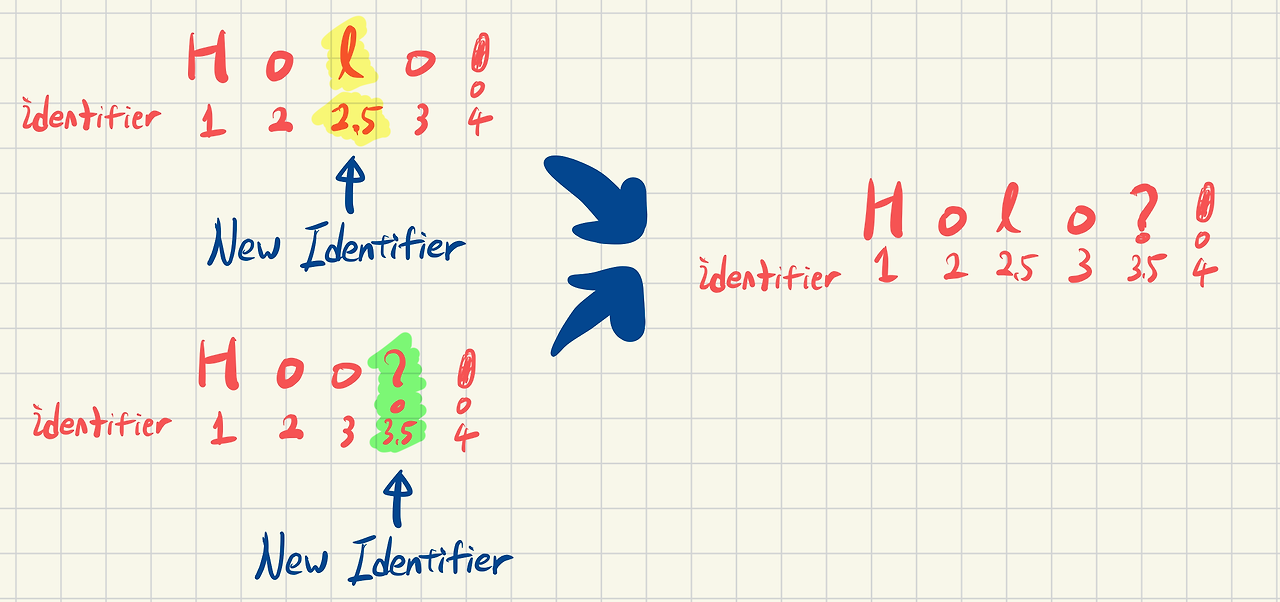 H o l o !
identifier 1 2 2.5 3 4
New Identifier
H o o ? !
identifier 1 2 3 3.5 4
New Identifier
H o l o ? !
identifier 1 2 2.5 3 3.5 4